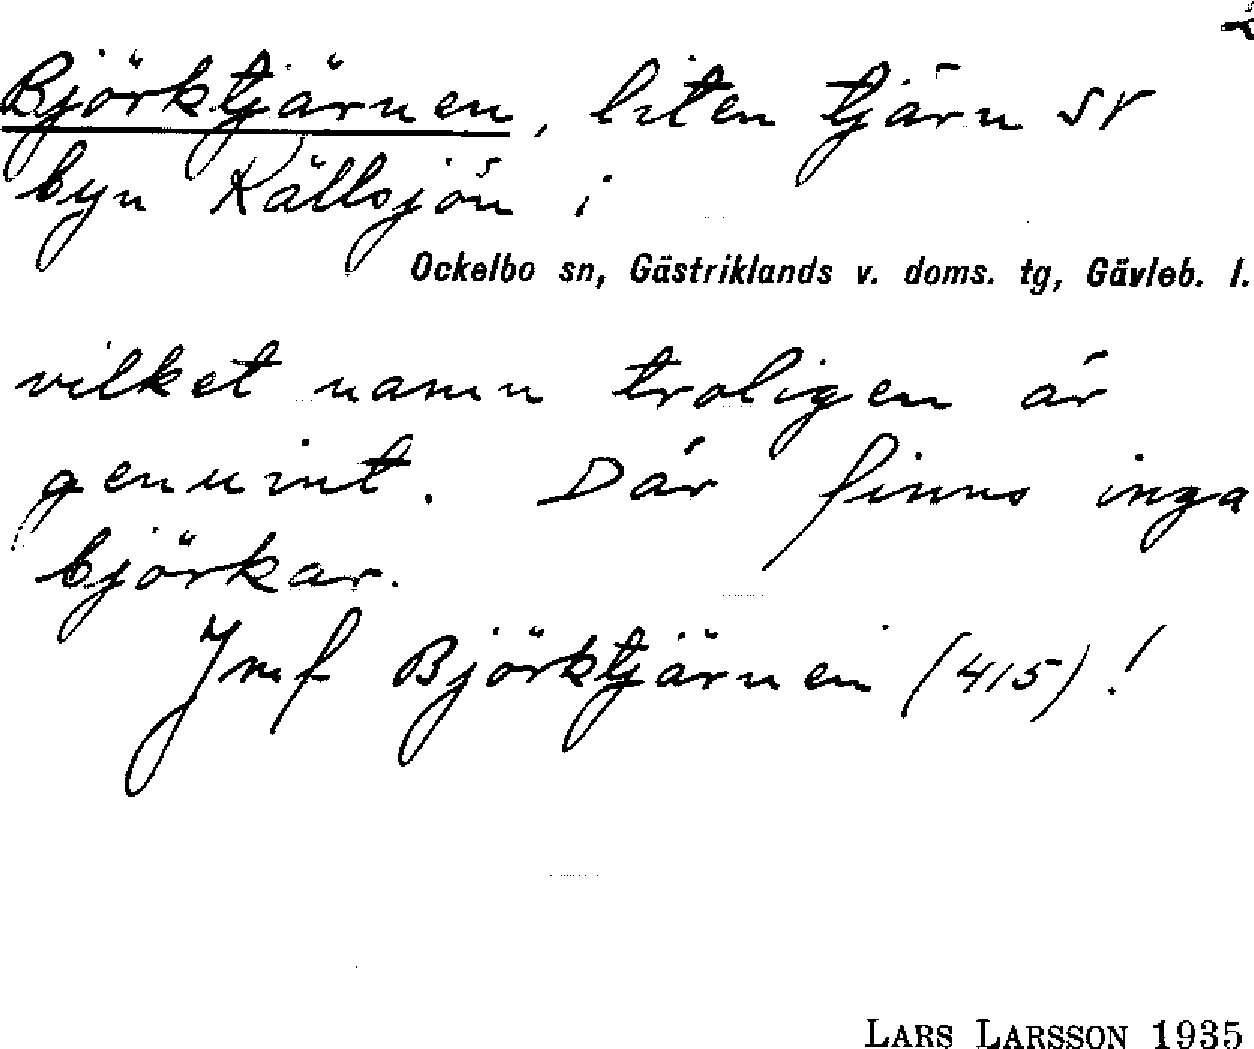 Björktjärnen, liten tjärn SV
byn Källsjön i
Ockelbo sn, Gästriklands v. doms. tg, Gävleb. l.
vilket namn troligen är
genuint. Där finns inga
björkar.
Jmf Björktjärnen (415)!
LARS LARSSON 1935